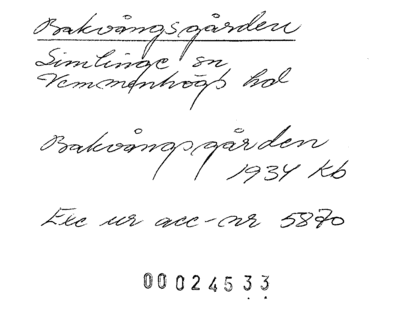 Bakvångsgården
Simlinge sn
Vemmenhögs hd
Bakvångsgården
1934 Kb
Exc ur acc-nr 5870
00024533